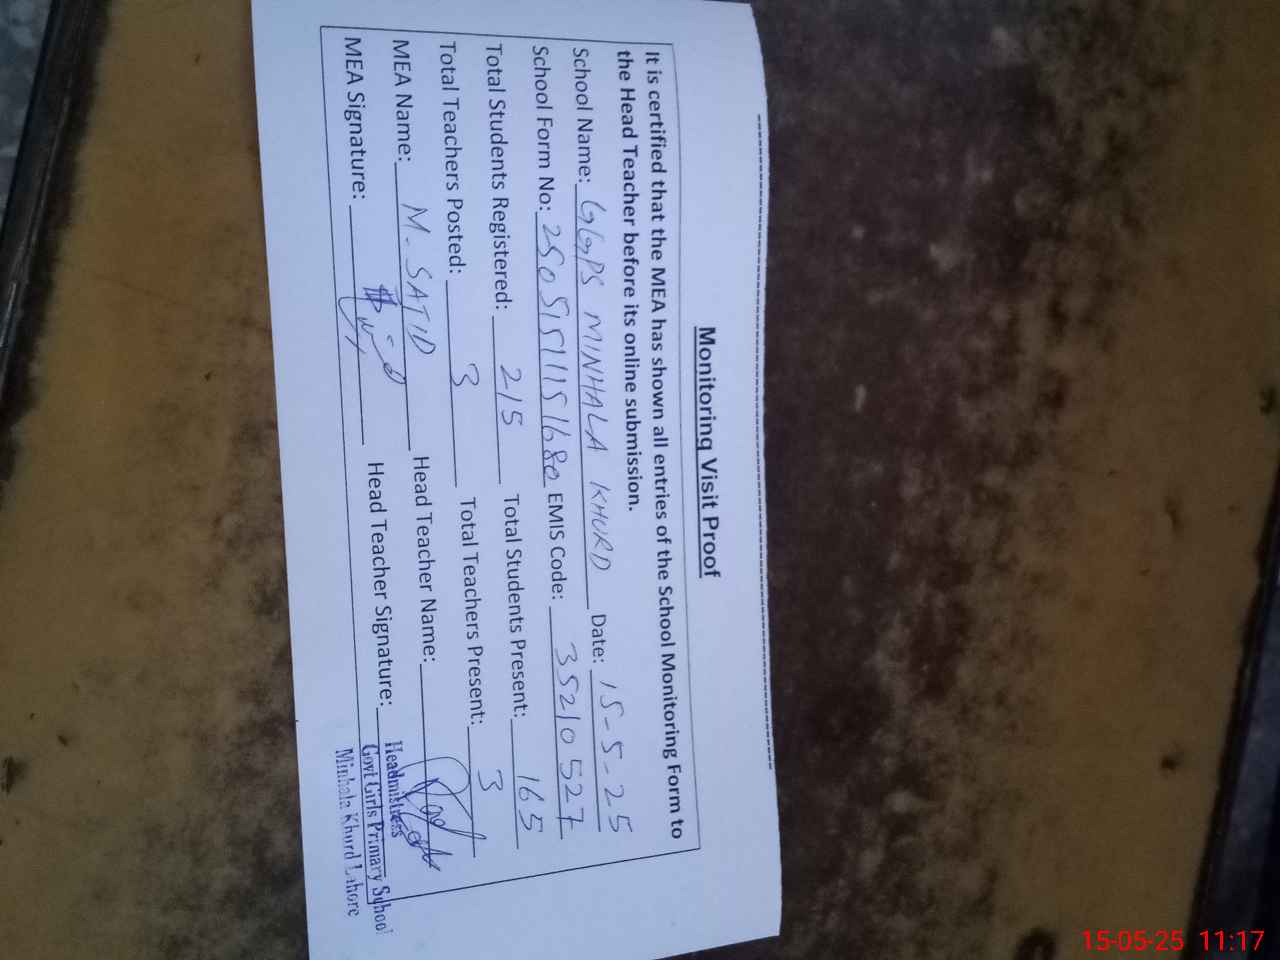 Monitoring Visit Proof
It is certified that the MEA has shown all entries of the School Monitoring Form to
the Head Teacher before its online submission.
School Name: GGPS MINHALA KHURD Date: 15-5-25
School Form No: 25051511151680 EMIS Code: 35210527
Total Students Registered: 215 Total Students Present: 165
Total Teachers Posted: 3 Total Teachers Present: 3
MEA Name: M-SAJID Head Teacher Name:
MEA Signature: Head Teacher Signature:
Headmistress
Govt Girls Primary School
Minhala Khurd Lahore
15-05-25 11:17